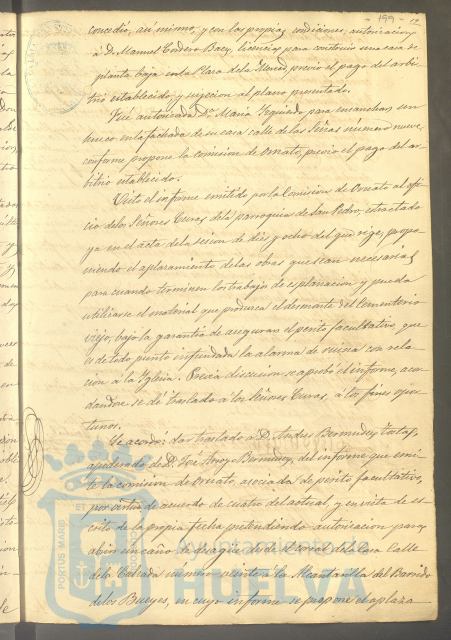 - 199 -
concedió, así mismo, y con las propias condiciones, autorizacion
á D. Manuel Cordero Baez, licencia, para construir una casa de
planta baja en la Plaza de la Merced, previo el pago del arbi-
trio establecido y sujecion al plano presentado.
Fué autorizada Dª Maria Izquierdo para ensanchar un
hueco en la fachada de su casa calle de las Señas número nueve,
conforme propone la comision de Ornato, previo el pago del ar-
bitrio establecido.
Visto el informe emitido por la Comision de Ornato al ofi-
cio de los Señores Curas de la parroquia de San Pedro, extractado
ya en el acta de la sesion de diez y ocho del que rige, propo-
niendo el aplazamiento de las obras que sean necesarias
para cuando terminen los trabajos de esplanacion y pueda
utilizarse el material que produzca el desmonte del Cementerio
viejo, bajo la garantía de asegurar el perito facultativo, que
es de todo punto infundada la alarma de ruina con rela-
cion á la Yglesia. Previa discusion, se aprobó el informe, acor-
dandose se dé traslado á los Señores Curas, á los fines opor-
tunos.
Se acordó: dar traslado á D. Andres Bermudez
apoderado de D. José Bermudez, del informe que emi-
te la comision de Ornato, asociada de perito facultativo,
por virtud de acuerdo de cuatro del actual, y en vista de es-
crito de la propia fecha pretendiendo autorizacion para
abrir un caño de desagüe desde el corral de la casa Calle
de la Calzada número veinte á la Alcantarilla del Barrido
de los Bueyes, en cuyo informe se propone el aplaza-
PORTUS MARIS ET TERRAE CUSTODIA
Ayuntamiento de
HUELVA